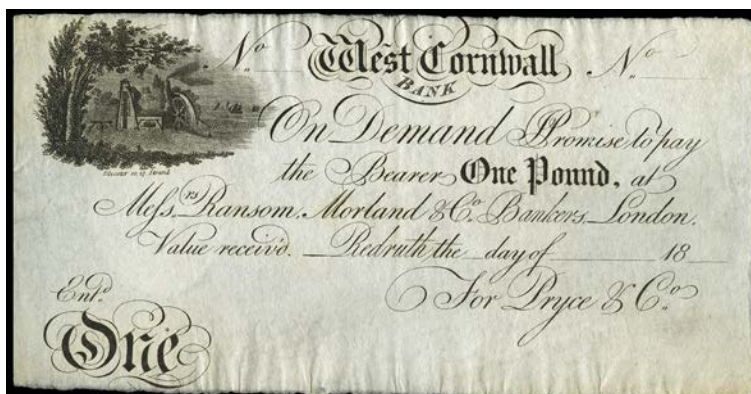 No West Cornwall No
BANK
On Demand I Promise to pay
the Bearer One Pound, at
Messrs Ransom, Morland & Co. Bankers, London.
Value receiv'd. Redruth the day of 18
Entd.
For Pryce & Co.
One